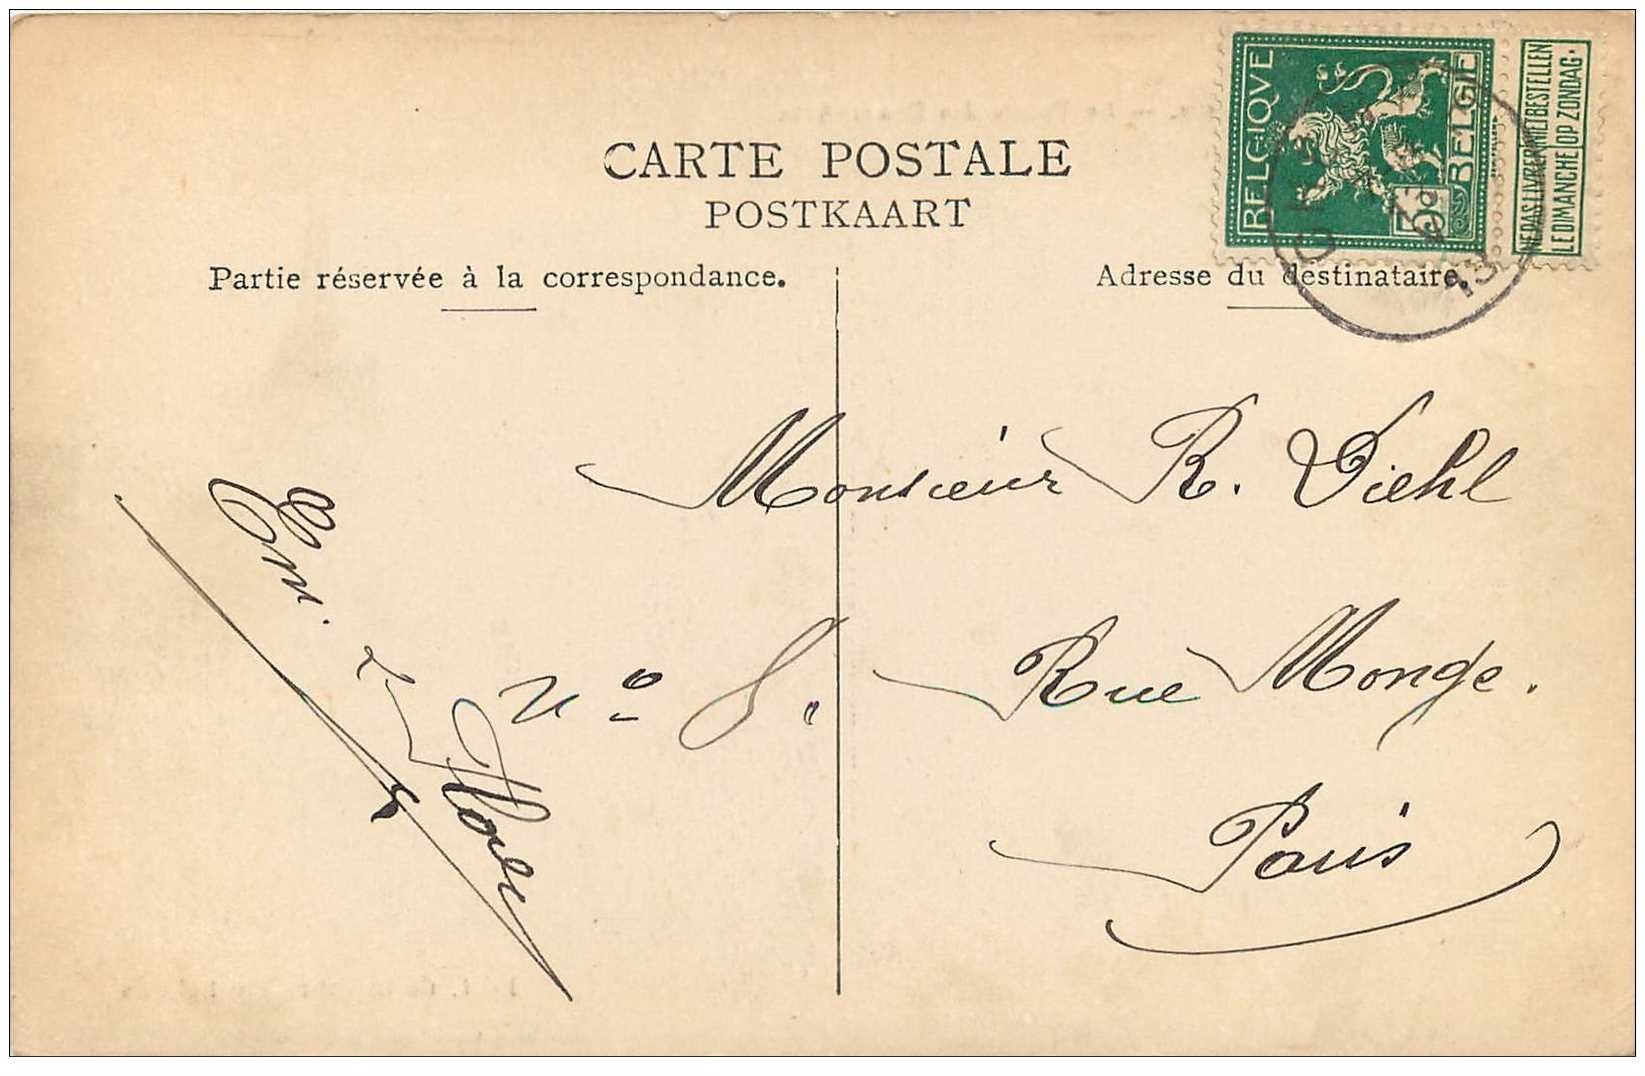 CARTE POSTALE
POSTKAART
Partie réservée à la correspondance.
Adresse du destinataire.
BELGIQUE
BELGIE
5
NE PAS LIVRER LE DIMANCHE
NIET BESTELLEN OP ZONDAG.
13
Monsieur R. Diehl
N° 8. Rue Monge.
Paris
Em.